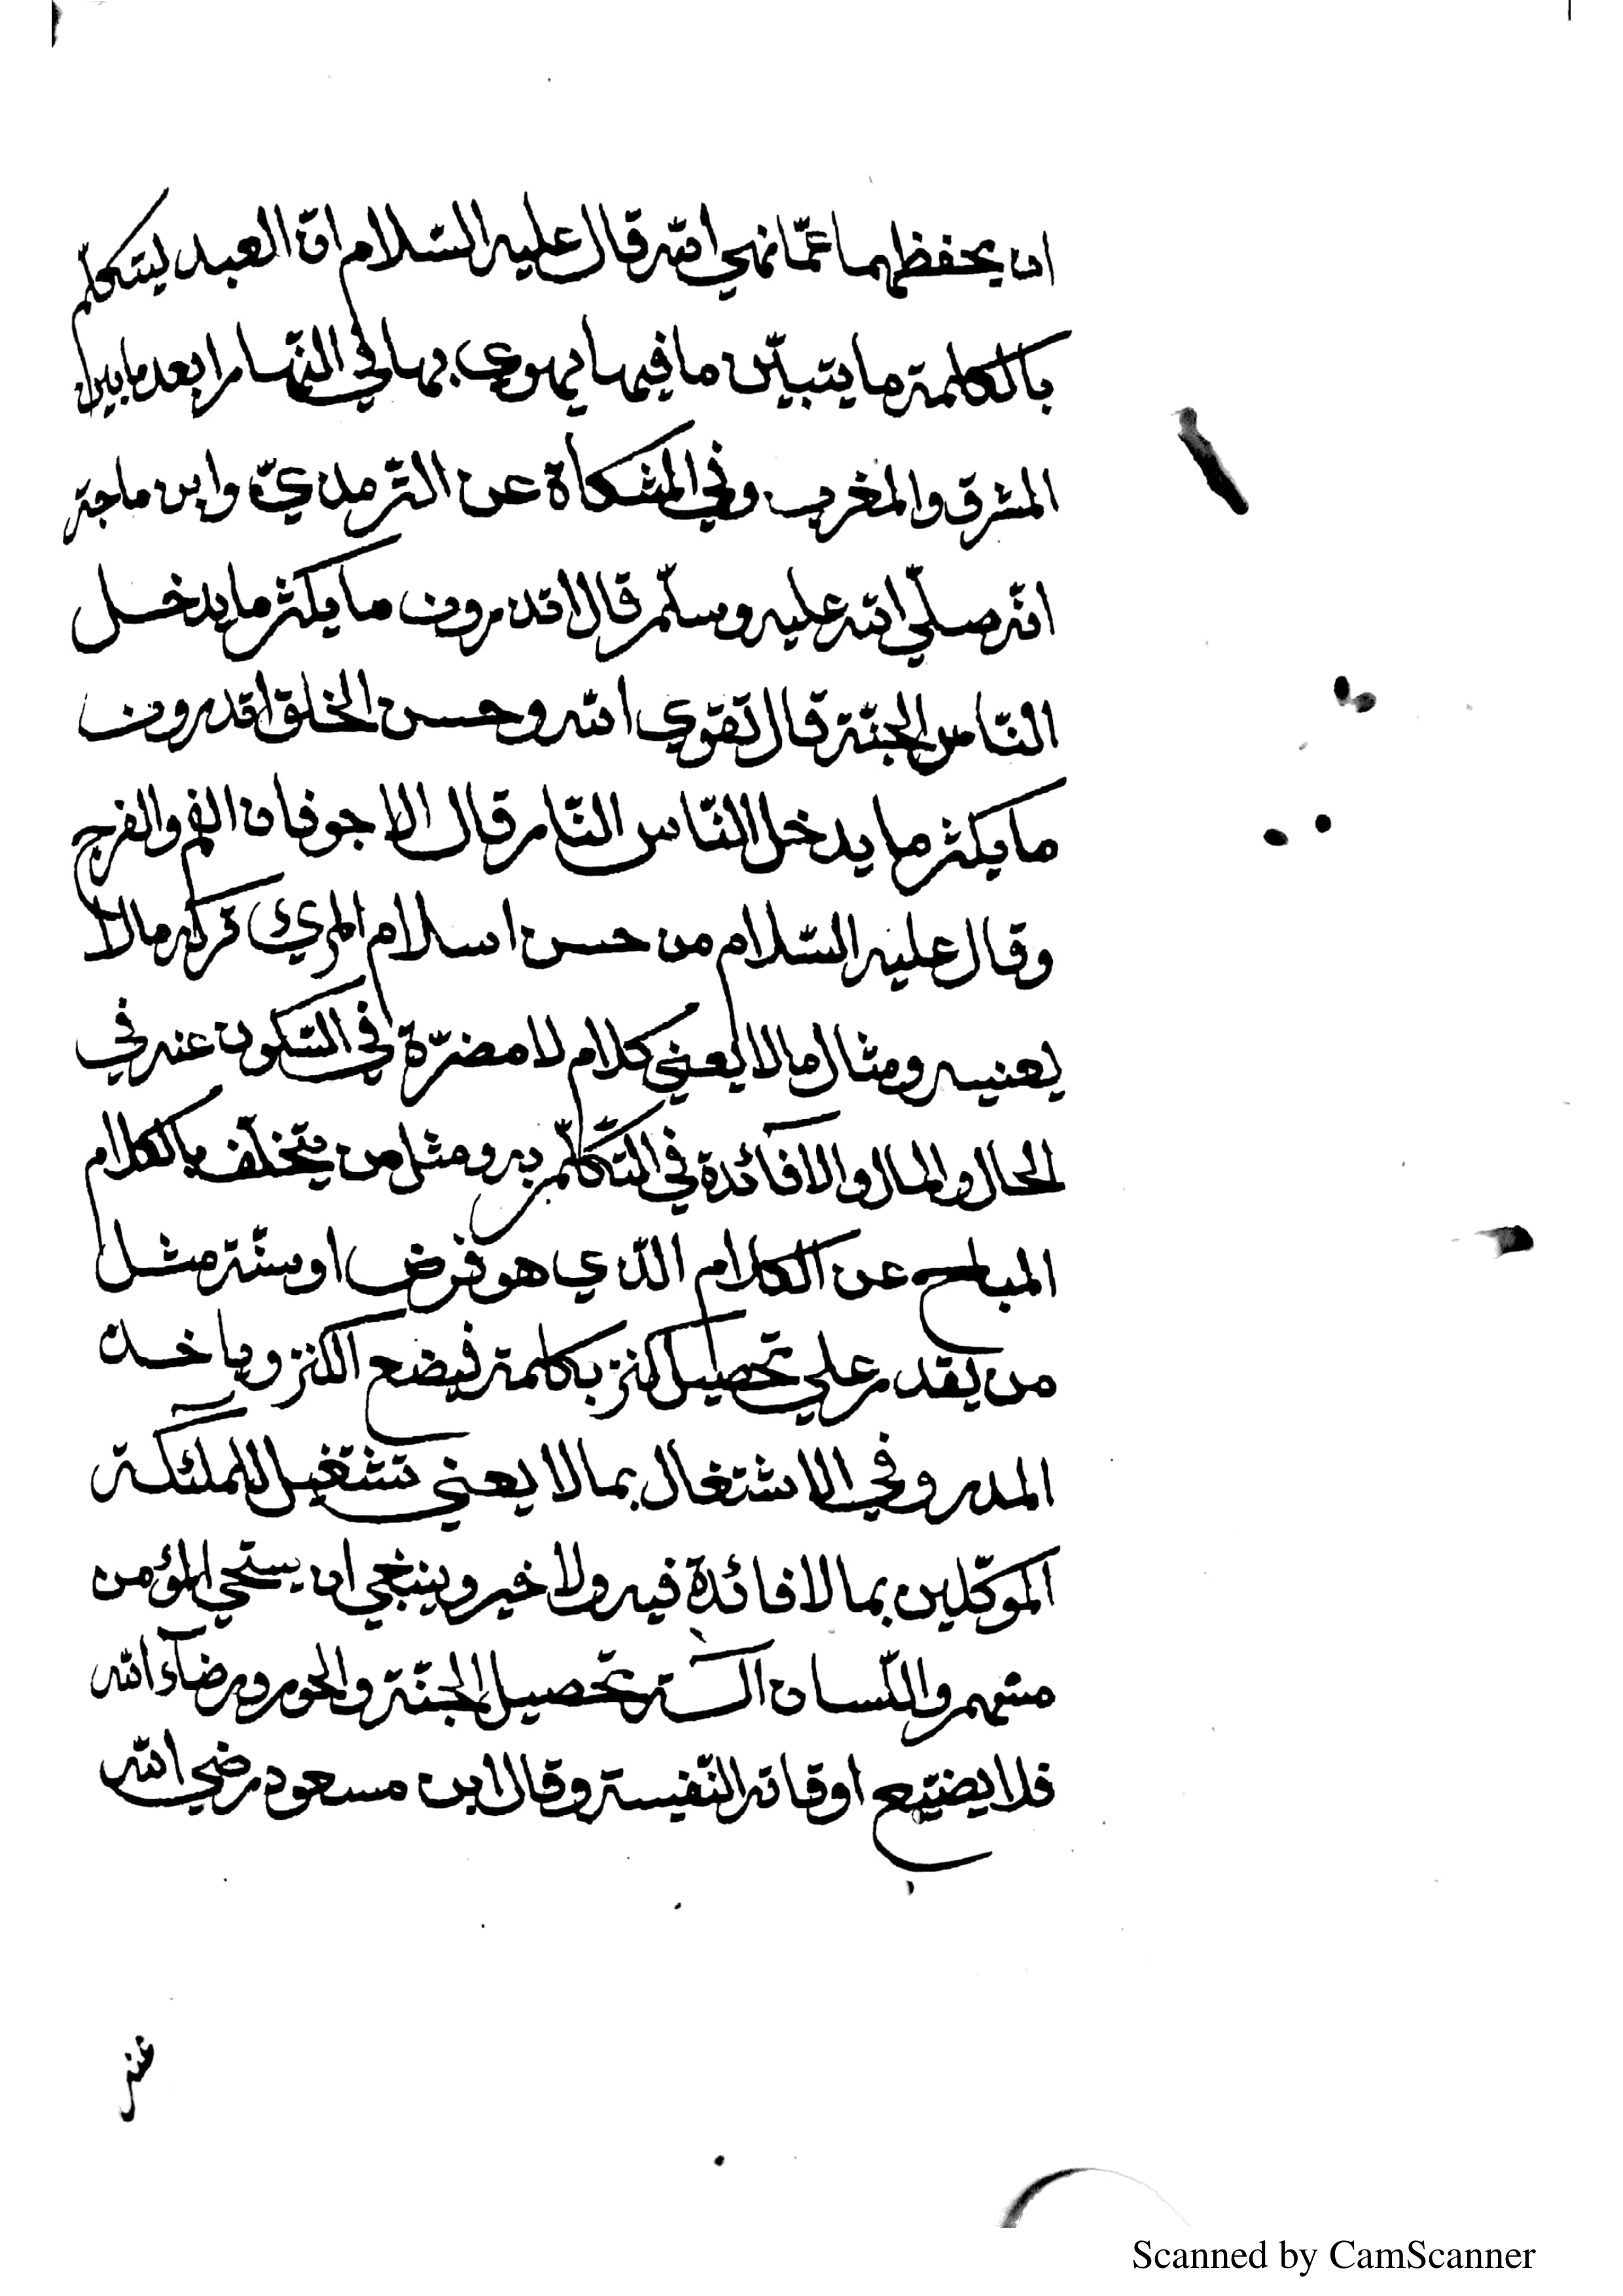 ان يحفظهما عمّا نهي الله قال عليه السّلام انّ العبد ليتكلّم
بالكلمة ما يتبيّن ما فيها يهوي بها في النّار ابعد ما بين
المشرق والمغرب وفي المشكاة عن التّرمذيّ وابن ماجة
انّه صلّي الله عليه وسلّم قال اتدرون ما يكثر ما يدخل
النّاس الجنّة قال تقوي الله وحسن الخلق اتدرون
ما يكثر ما يدخل النّاس النّار قال الاجوفان الفم والفرج
وقال عليه السّلام من حسن اسلام المريء تركه مالا
يعنيه ومثال مالا يعني كلام لا مضرّة في السّكوت عنه في
الحال والمال ولا فآئدة في التّكلّم به ومثل من يتخلّف بالكلام
المباح عن الكلام الّذي هو فرض او سنّة مثل
من يقدر علي تحصيل كنز بكلمة فيضع الكنز وياخذ
المدر وفي الاشتغال بمالا يعني تشتغيل للملئكة
الموكّلين بمالا فائدة فيه ولا خير وينبغي ان يستحي المؤمن
منهم واللّسان آلة تحصيل الجنّة والحور ورضآء الله
فلا يضيّع اوقاته النّفيسة وقال ابن مسعود رضي الله
عنه
Scanned by CamScanner